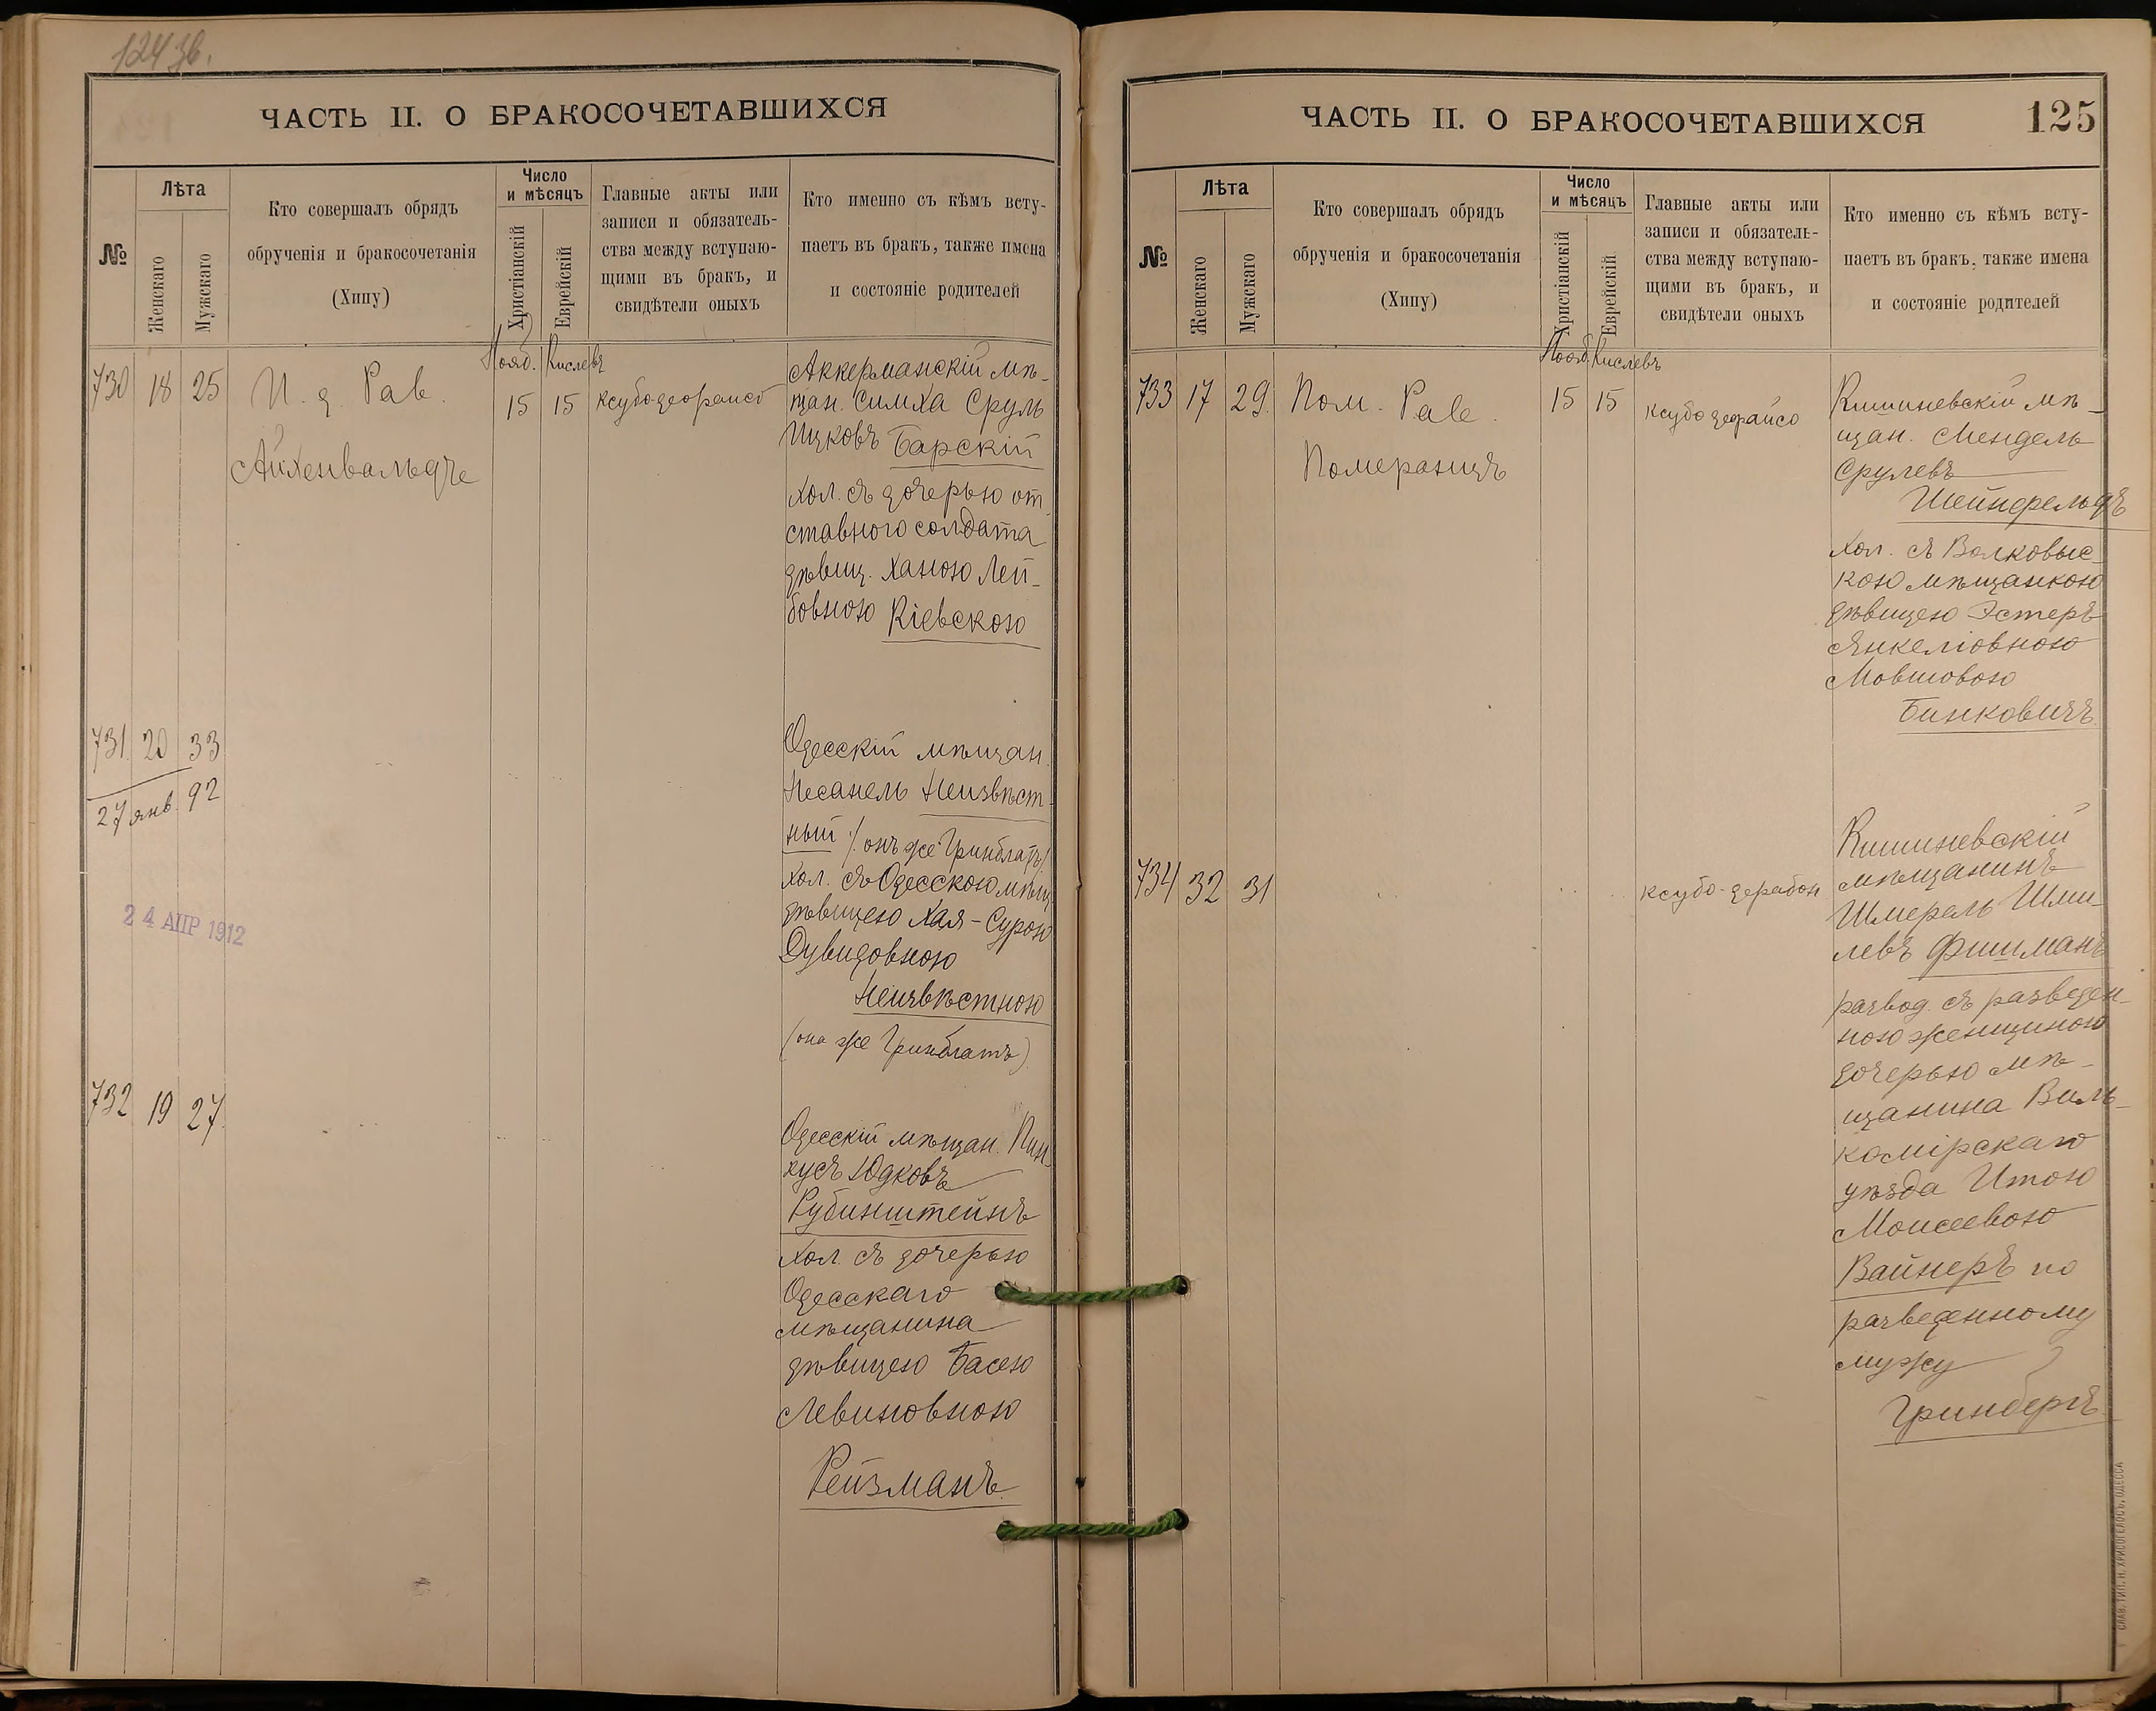 124 зв.
ЧАСТЬ II. О БРАКОСОЧЕТАВШИХСЯ
№
Лѣта
Женскаго
Мужскаго
Кто совершалъ обрядъ
обрученія и бракосочетанія
(Хипу)
Число
и мѣсяцъ
Христіанскій
Еврейскій
Главные акты или
записи и обязатель-
ства между вступаю-
щими въ бракъ, и
свидѣтели оныхъ
Кто именно съ кѣмъ всту-
паетъ въ бракъ, также имена
и состояніе родителей
730 18 25
И. д. Рав.
Айхенвальдъ
Нояб. Кислевъ
15 15
ксубо деорайсо
Аккерманскій мѣ-
щан. Симха Сруль
Ицковъ Барскій
хол. съ дочерью от
ставного солдата
дѣвиц. Ханою Лей-
бовною Кіевскою
731. 20 33
27 янв. 92
24 АПР 1912
Одесскій мѣщан.
Несанель Неизвѣст-
ный /. онъ же Гринблатъ/
хол. съ Одесскою мѣщ
дѣвицею Хая-Сурою
Дувидовною
Неизвѣстною
(она же Гринблатъ)
732 19 27.
Одесскій мѣщан. Пин-
кусъ Юдковъ
Рубинштейнъ
хол. съ дочерью
Одесскаго
мѣщанина
дѣвицею Басею
Левиновною
Рейзманъ
ЧАСТЬ II. О БРАКОСОЧЕТАВШИХСЯ
125
№
Лѣта
Женскаго
Мужскаго
Кто совершалъ обрядъ
обрученія и бракосочетанія
(Хипу)
Число
и мѣсяцъ
Христіанскій
Еврейскій
Главные акты или
записи и обязатель-
ства между вступаю-
щими въ бракъ, и
свидѣтели оныхъ
Кто именно съ кѣмъ всту-
паетъ въ бракъ, также имена
и состояніе родителей
733 17 29.
Пом. Рав.
Померанцъ
Нояб. Кислевъ
15 15
ксубо деорайсо
Кишиневскій мѣ-
щан. Мендель
Срулевъ
Шейнфельдъ
хол. съ Волковыс-
кою мѣщанкою
дѣвицею Эстеръ
Янкеліовною
Мовшовою
Бинковичъ
734 32 31
ксубо-дерабон
Кишиневскій
мѣщанинъ
Шмерель Шми-
левъ Фишманъ
развод. съ разведен-
ною женщиною
дочерью мѣ-
щанина Виль-
комірскаго
уѣзда Итою
Моисеевою
Вайнеръ по
разведенному
мужу
Гринбергъ
СЛАВ. ТИП. Н. ХРИСОГЕЛОСЪ, ОДЕССА